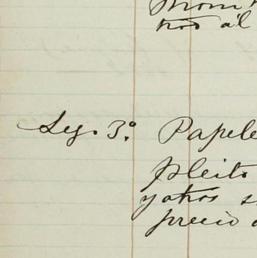 tros al
Leg. 3º. Papele
pleito
y otros s
precio